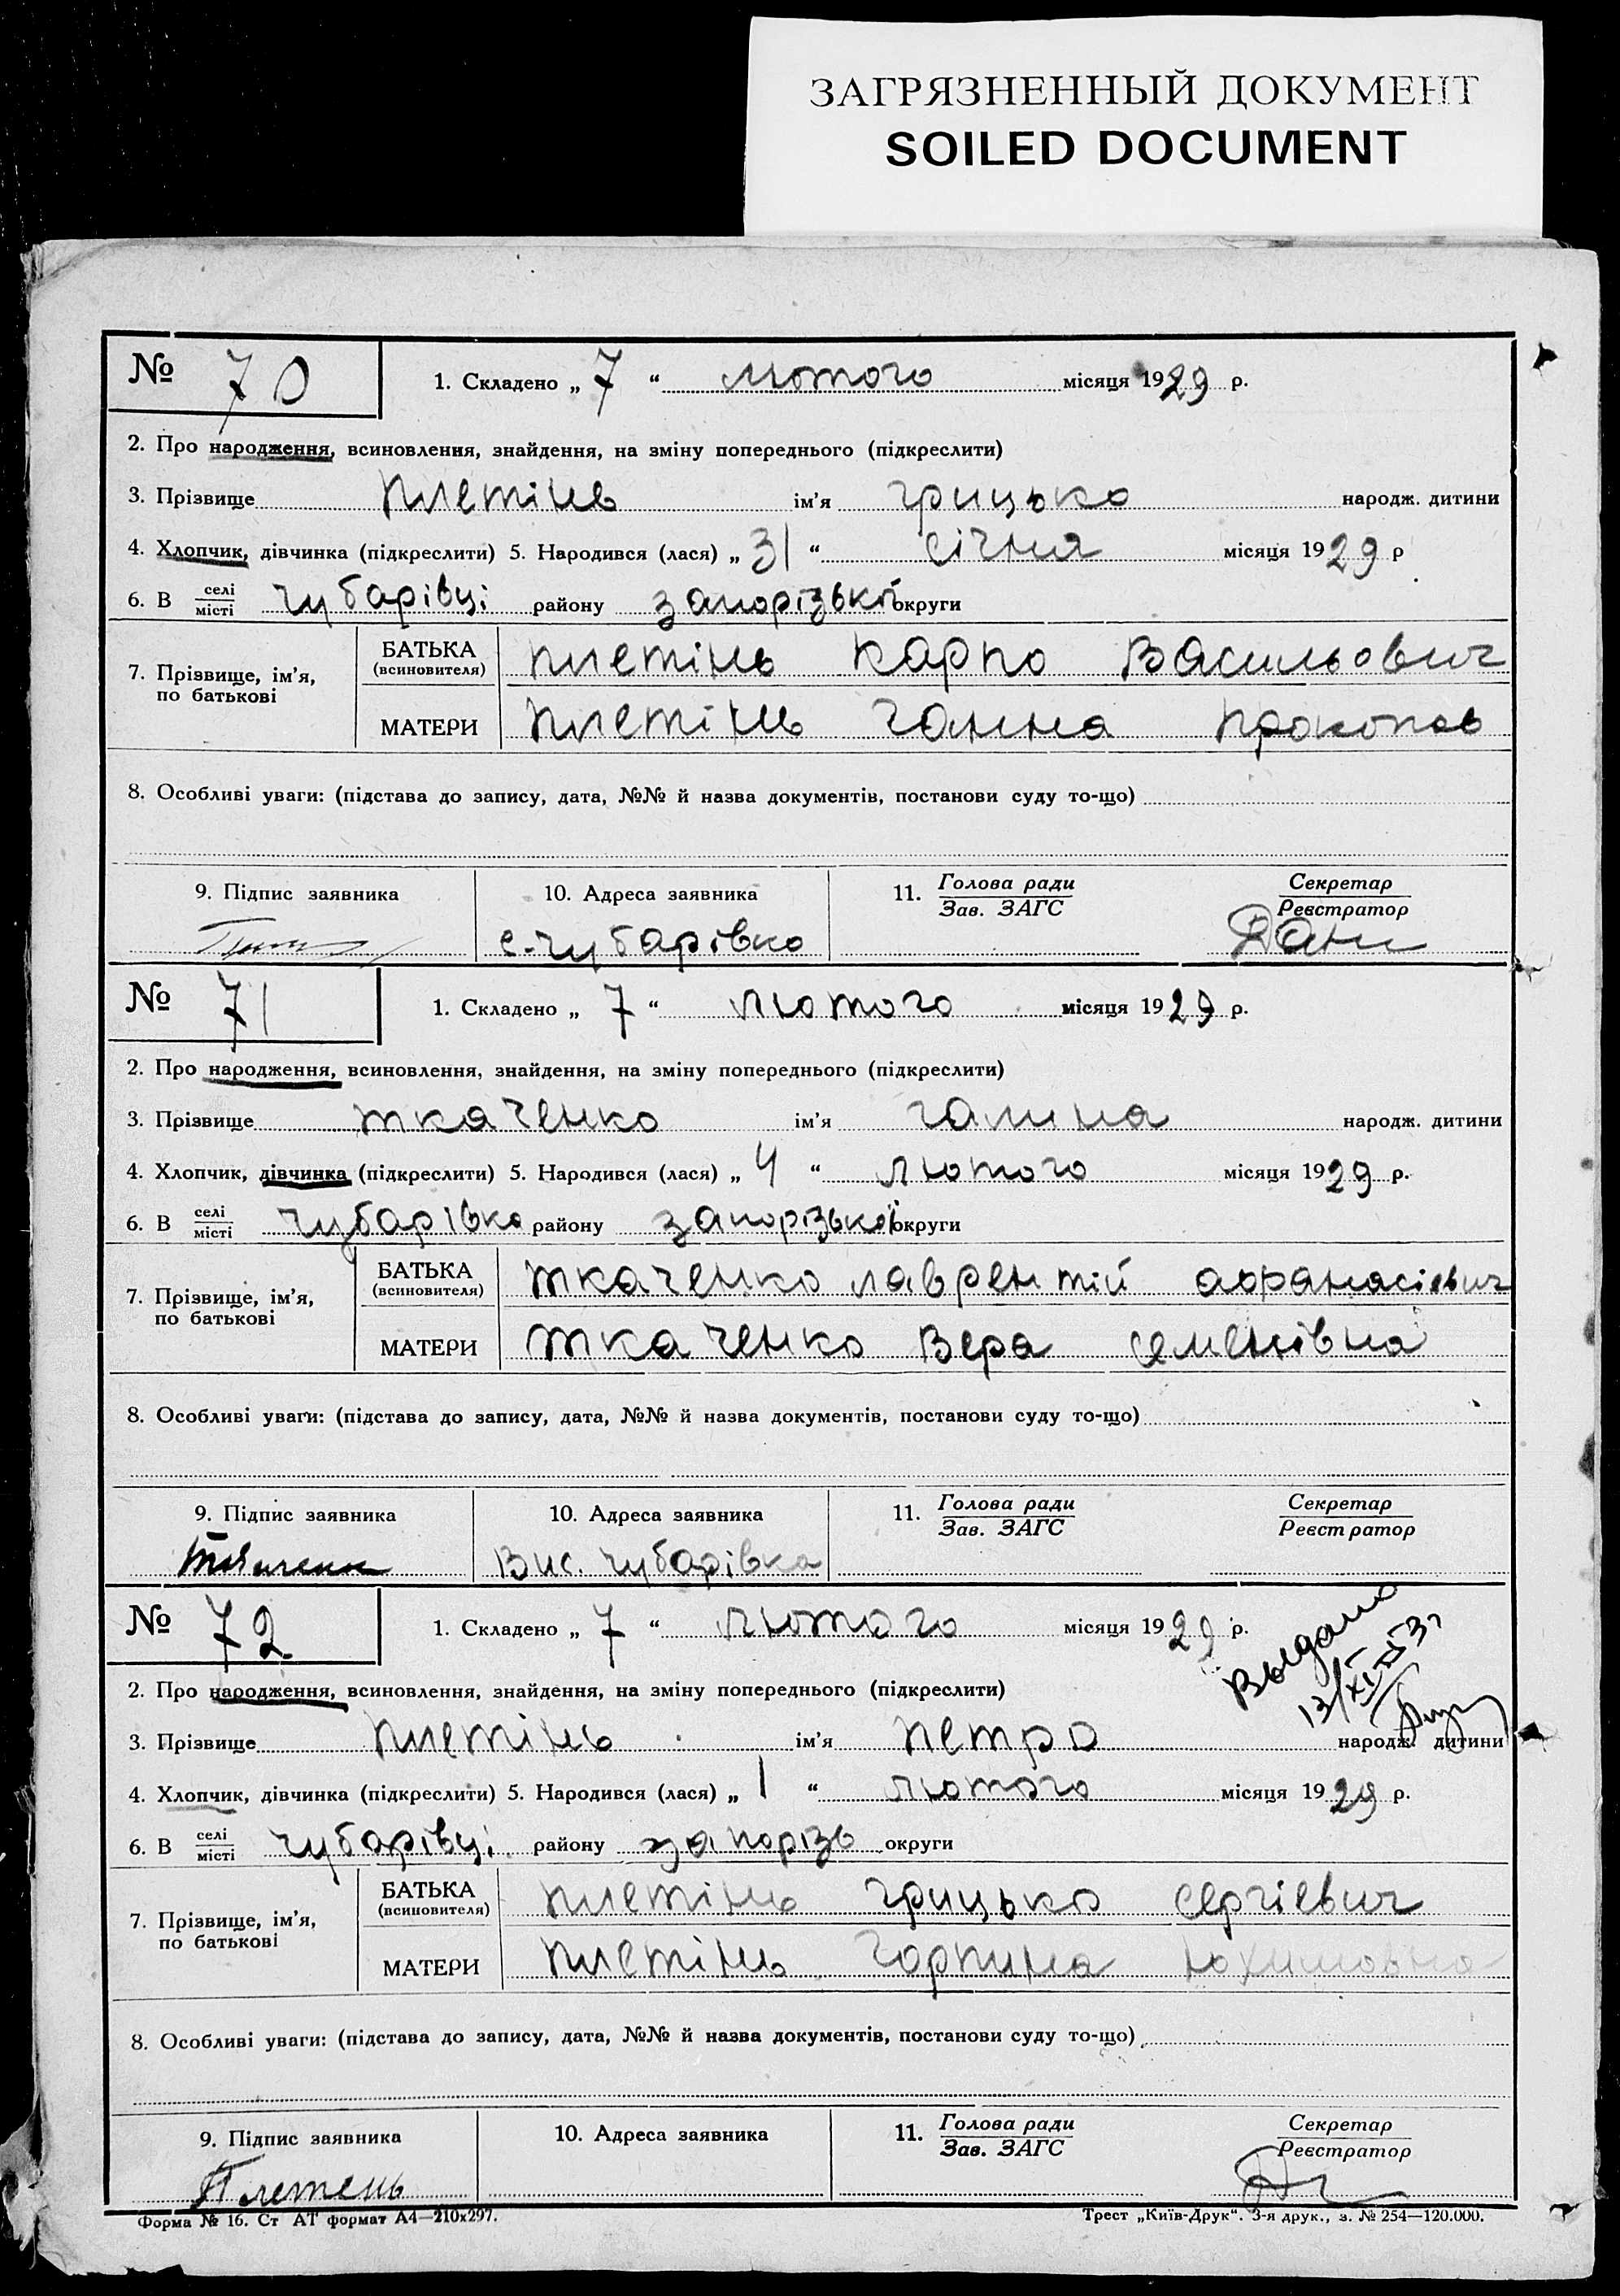 ЗАГРЯЗНЕННЫЙ ДОКУМЕНТ
SOILED DOCUMENT
№ 70
1. Складено „ 7 “ лютого місяця 1929 р.
2. Про народження, всиновлення, знайдення, на зміну попереднього (підкреслити)
3. Прізвище плетінь ім’я грицько народж. дитини
4. Хлопчик, дівчинка (підкреслити) 5. Народився (лася) „ 31 “ січня місяця 1929 р
6. В селі/місті чубарівці району запорізької округи
7. Прізвище, ім’я, по батькові
БАТЬКА (всиновителя) плетінь карпо Васильович
МАТЕРИ плетінь ганна прокопов
8. Особливі уваги: (підстава до запису, дата, №№ й назва документів, постанови суду то-що)
9. Підпис заявника
10. Адреса заявника
11. Голова ради Зав. ЗАГС
Секретар Реєстратор
с. чубарівка
№ 71
1. Складено „ 7 “ лютого місяця 1929 р.
2. Про народження, всиновлення, знайдення, на зміну попереднього (підкреслити)
3. Прізвище ткаченко ім’я галина народж. дитини
4. Хлопчик, дівчинка (підкреслити) 5. Народився (лася) „ 4 “ лютого місяця 1929 р.
6. В селі/місті чубарівка району запорізької округи
7. Прізвище, ім’я, по батькові
БАТЬКА (всиновителя) ткаченко лаврентій афанасієвич
МАТЕРИ ткаченко Вера семенівна
8. Особливі уваги: (підстава до запису, дата, №№ й назва документів, постанови суду то-що)
9. Підпис заявника
10. Адреса заявника
11. Голова ради Зав. ЗАГС
Секретар Реєстратор
Вис. чубарівка
№ 72
1. Складено „ 7 “ лютого місяця 1929 р.
Выдано
2. Про народження, всиновлення, знайдення, на зміну попереднього (підкреслити)
3. Прізвище плетінь ім’я петро народж. дитини
4. Хлопчик, дівчинка (підкреслити) 5. Народився (лася) „ 1 “ лютого місяця 1929 р.
6. В селі/місті чубарівці району запорізь округи
7. Прізвище, ім’я, по батькові
БАТЬКА (всиновителя) плетінь грицько сергієвич
МАТЕРИ плетінь горпина юхимовна
8. Особливі уваги: (підстава до запису, дата, №№ й назва документів, постанови суду то-що)
9. Підпис заявника
10. Адреса заявника
11. Голова ради Зав. ЗАГС
Секретар Реєстратор
Плетень
Форма № 16. Ст АТ формат А4—210х297.
Трест „Київ-Друк“. 3-я друк., з. № 254—120.000.